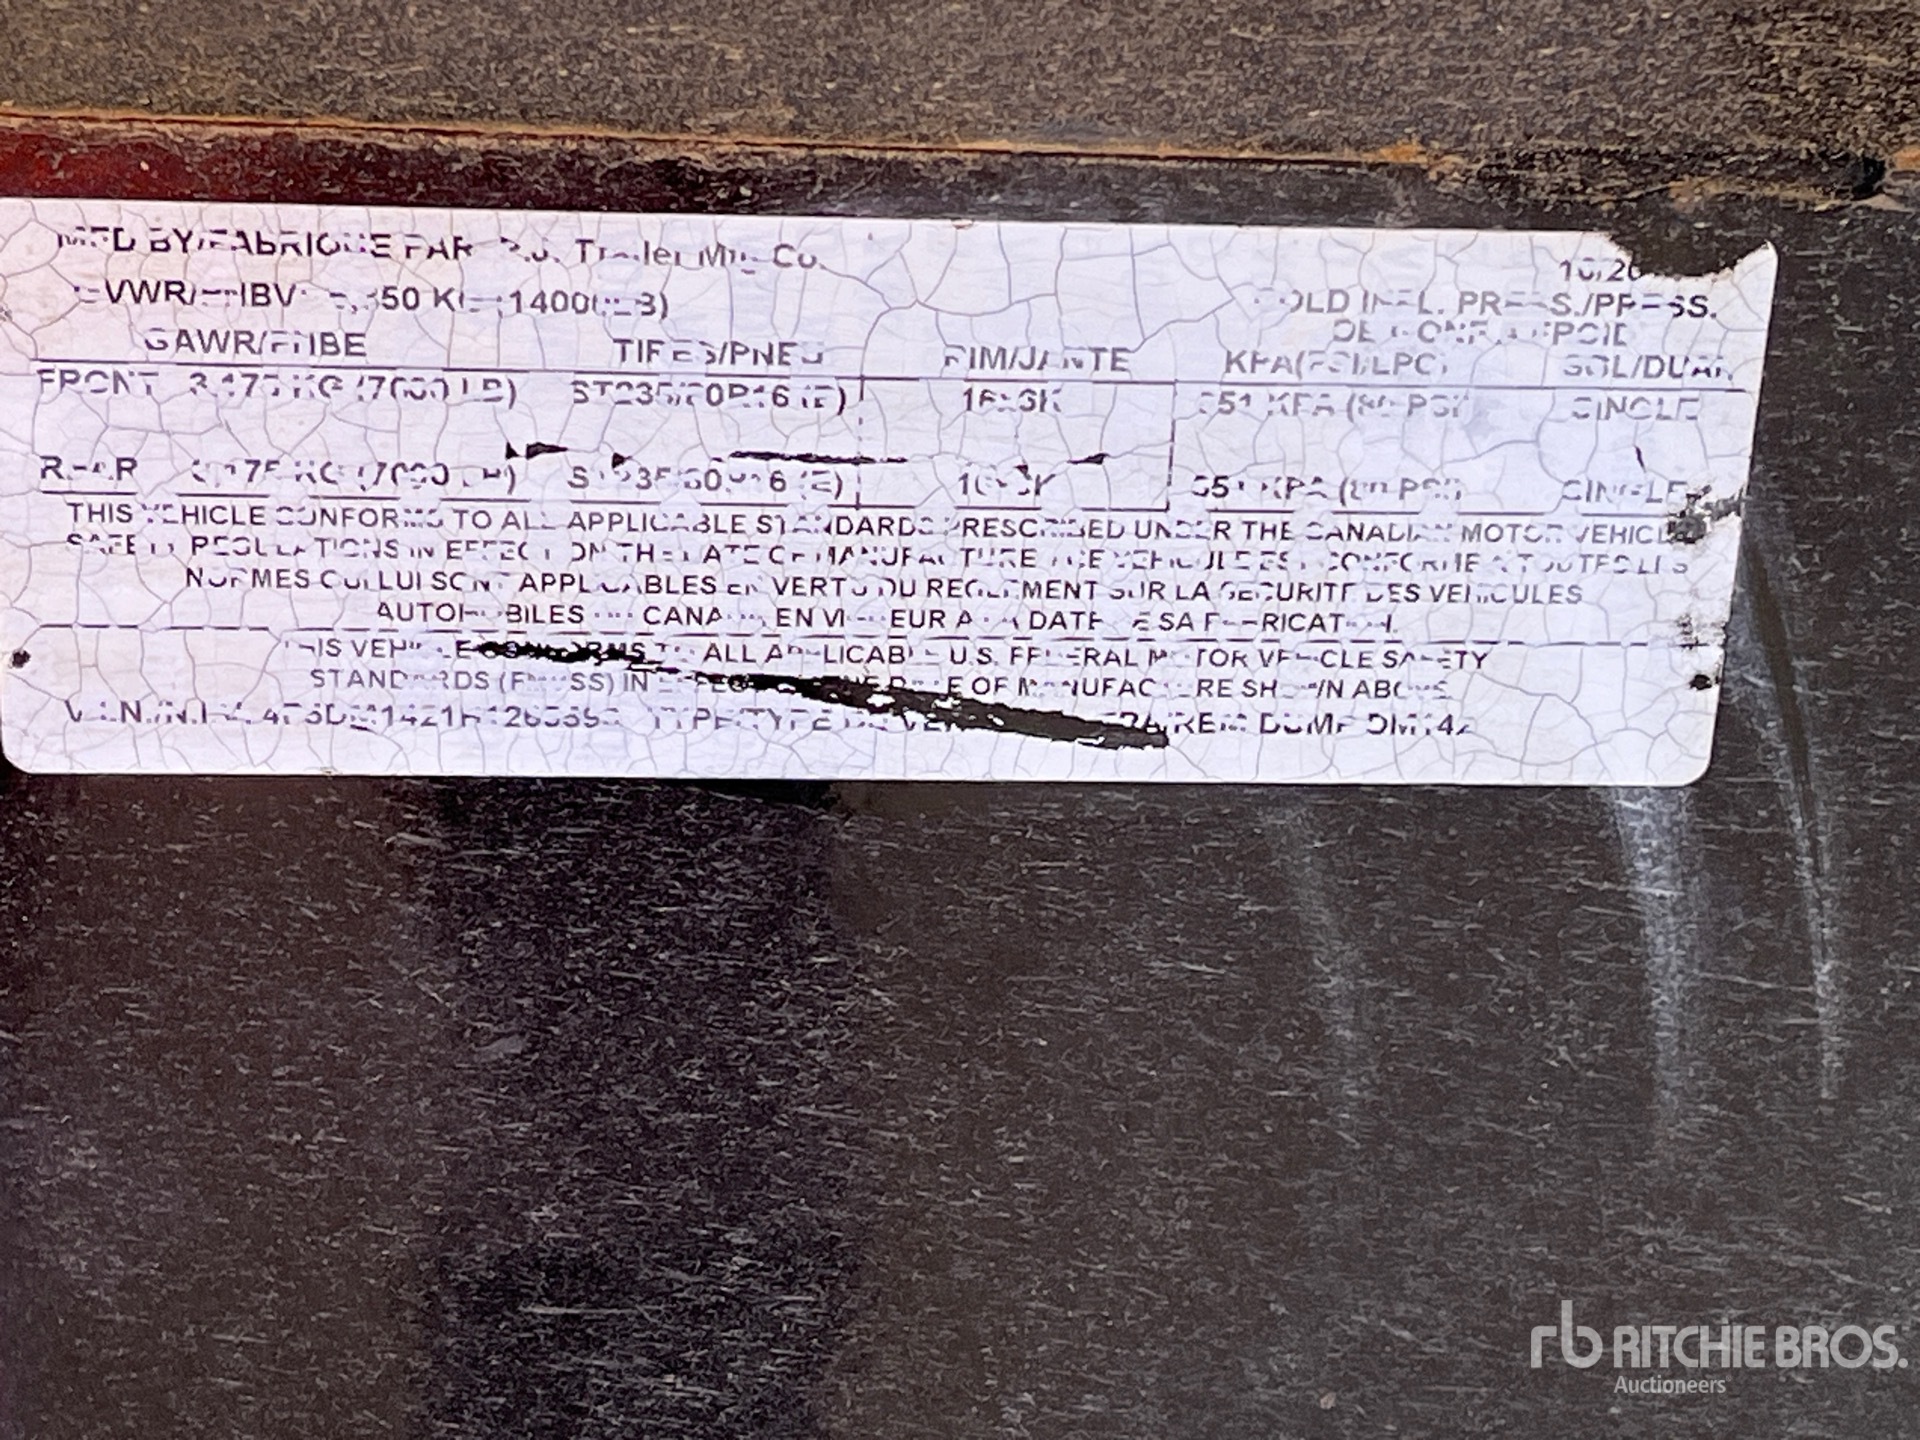 MFD BY/FABRIQUE PAR P.J. Trailer Mfg. Co.
10/20
GVWR/PNBV 6,350 KG (14000LB)
COLD INFL. PRESS./PRESS.
DE GONF. A FROID
GAWR/PNBE TIRES/PNEU RIM/JANTE KPA(PSI/LPC) SGL/DUAL
FRONT 3,175 KG (7000 LB) 16X6K 551 KPA (80 PSI) SINGLE
REAR 3,175 KG (7000 LB) 16X6K 551 KPA (80 PSI) SINGLE
THIS VEHICLE CONFORMS TO ALL APPLICABLE STANDARDS PRESCRIBED UNDER THE CANADIAN MOTOR VEHICLE
SAFETY REGULATIONS IN EFFECT ON THE DATE OF MANUFACTURE / CE VEHICULE EST CONFORME A TOUTES LES
NORMES QUI LUI SONT APPLICABLES EN VERTU DU REGLEMENT SUR LA SECURITE DES VEHICULES
AUTOMOBILES DU CANADA EN VIGUEUR A LA DATE DE SA FABRICATION.
THIS VEHICLE CONFORMS TO ALL APPLICABLE U.S. FEDERAL MOTOR VEHICLE SAFETY
STANDARDS (FMVSS) IN EFFECT ON THE DATE OF MANUFACTURE SHOWN ABOVE
V.I.N./N.I.V. TYPE/TYPE DE VEH DUMP DM142
rb RITCHIE BROS.
Auctioneers